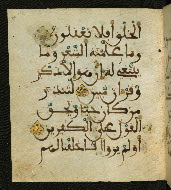 الخلق افلا يعقلون
وما علمنه الشعر وما
ينبغى له ان هو الا ذكر
وقران مبين لتنذر
من كان حيا ويحق
القول على الكفرين
اولم يروا انا خلقنا لهم